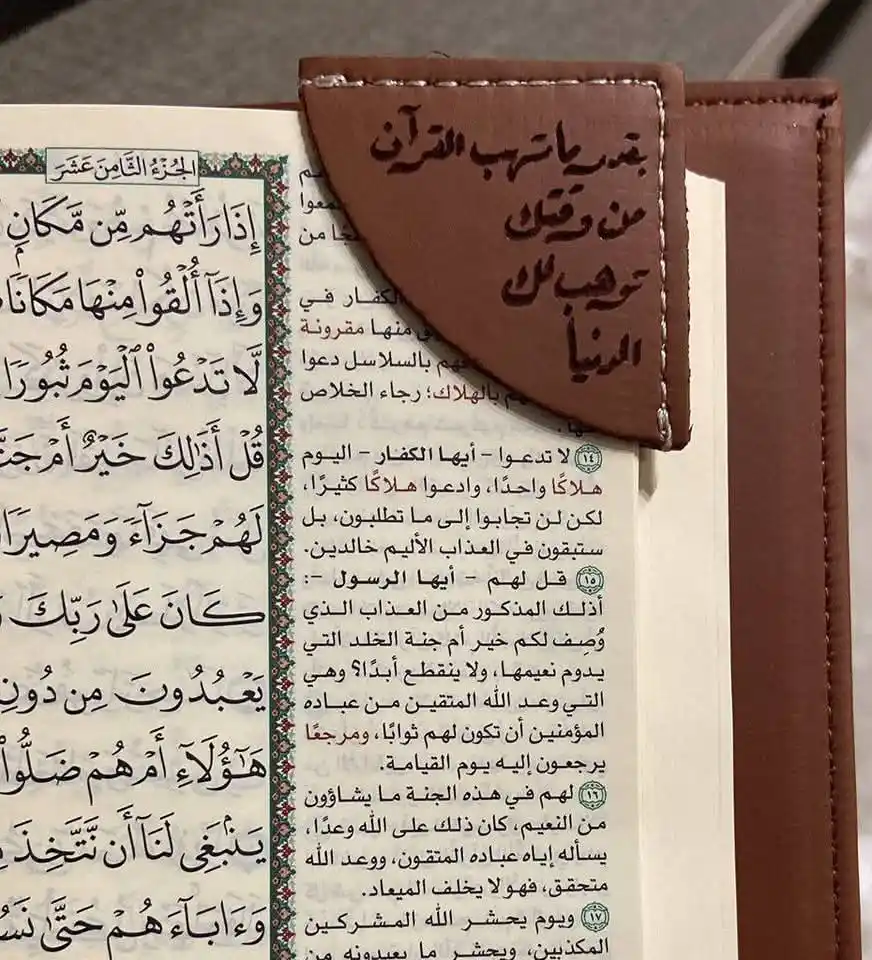 بقدر ما تهب القرآن
من وقتك
توهب لك
الدنيا
الجُزْءُ الثَّامِنَ عَشَرَ
إِذَا رَأَتْهُم مِّن مَّكَانِۭ
وَإِذَآ أُلْقُوا۟ مِنْهَا مَكَانًا
لَّا تَدْعُوا۟ ٱلْيَوْمَ ثُبُورًا
قُلْ أَذَٰلِكَ خَيْرٌ أَمْ
لَهُمْ جَزَآءً وَمَصِيرًا
كَانَ عَلَىٰ رَبِّكَ
يَعْبُدُونَ مِن دُونِ
هَٰٓؤُلَآءِ أَمْ هُمْ ضَلُّوا۟
يَنۢبَغِى لَنَآ أَن نَّتَّخِذَ
وَءَابَآءَهُمْ حَتَّىٰ
من
الكفار في
منها مقرونة
بالسلاسل دعوا
بالهلاك؛ رجاء الخلاص
١٤ لا تدعوا - أيها الكفار - اليوم
هلاكًا واحدًا، وادعوا هلاكًا كثيرًا،
لكن لن تجابوا إلى ما تطلبون، بل
ستبقون في العذاب الأليم خالدين.
١٥ قل لهم - أيها الرسول -:
أذلك المذكور من العذاب الذي
وُصِف لكم خير أم جنة الخلد التي
يدوم نعيمها، ولا ينقطع أبدًا؟ وهي
التي وعد الله المتقين من عباده
المؤمنين أن تكون لهم ثوابًا، ومرجعًا
يرجعون إليه يوم القيامة.
١٦ لهم في هذه الجنة ما يشاؤون
من النعيم، كان ذلك على الله وعدًا،
يسأله إياه عباده المتقون، ووعد الله
متحقق، فهو لا يخلف الميعاد.
١٧ ويوم يحشر الله المشركين
المكذبين، ويحشر ما يعبدونه من